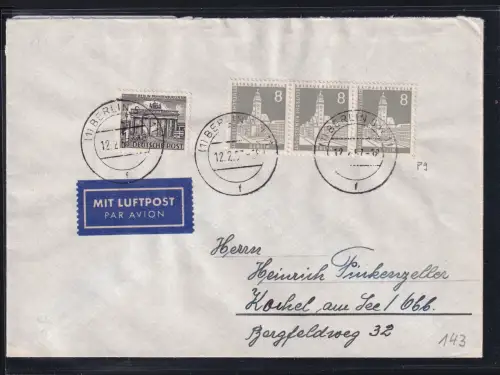 8 8 8
DEUTSCHE POST
(1) BERLIN
12.2.
(1) BERLIN
12.2.
(1) BERLIN
12.2.
MIT LUFTPOST
PAR AVION
Herrn
Heinrich Pinkenzeller
Kochel am See / Obb.
Bergfeldweg 32
143